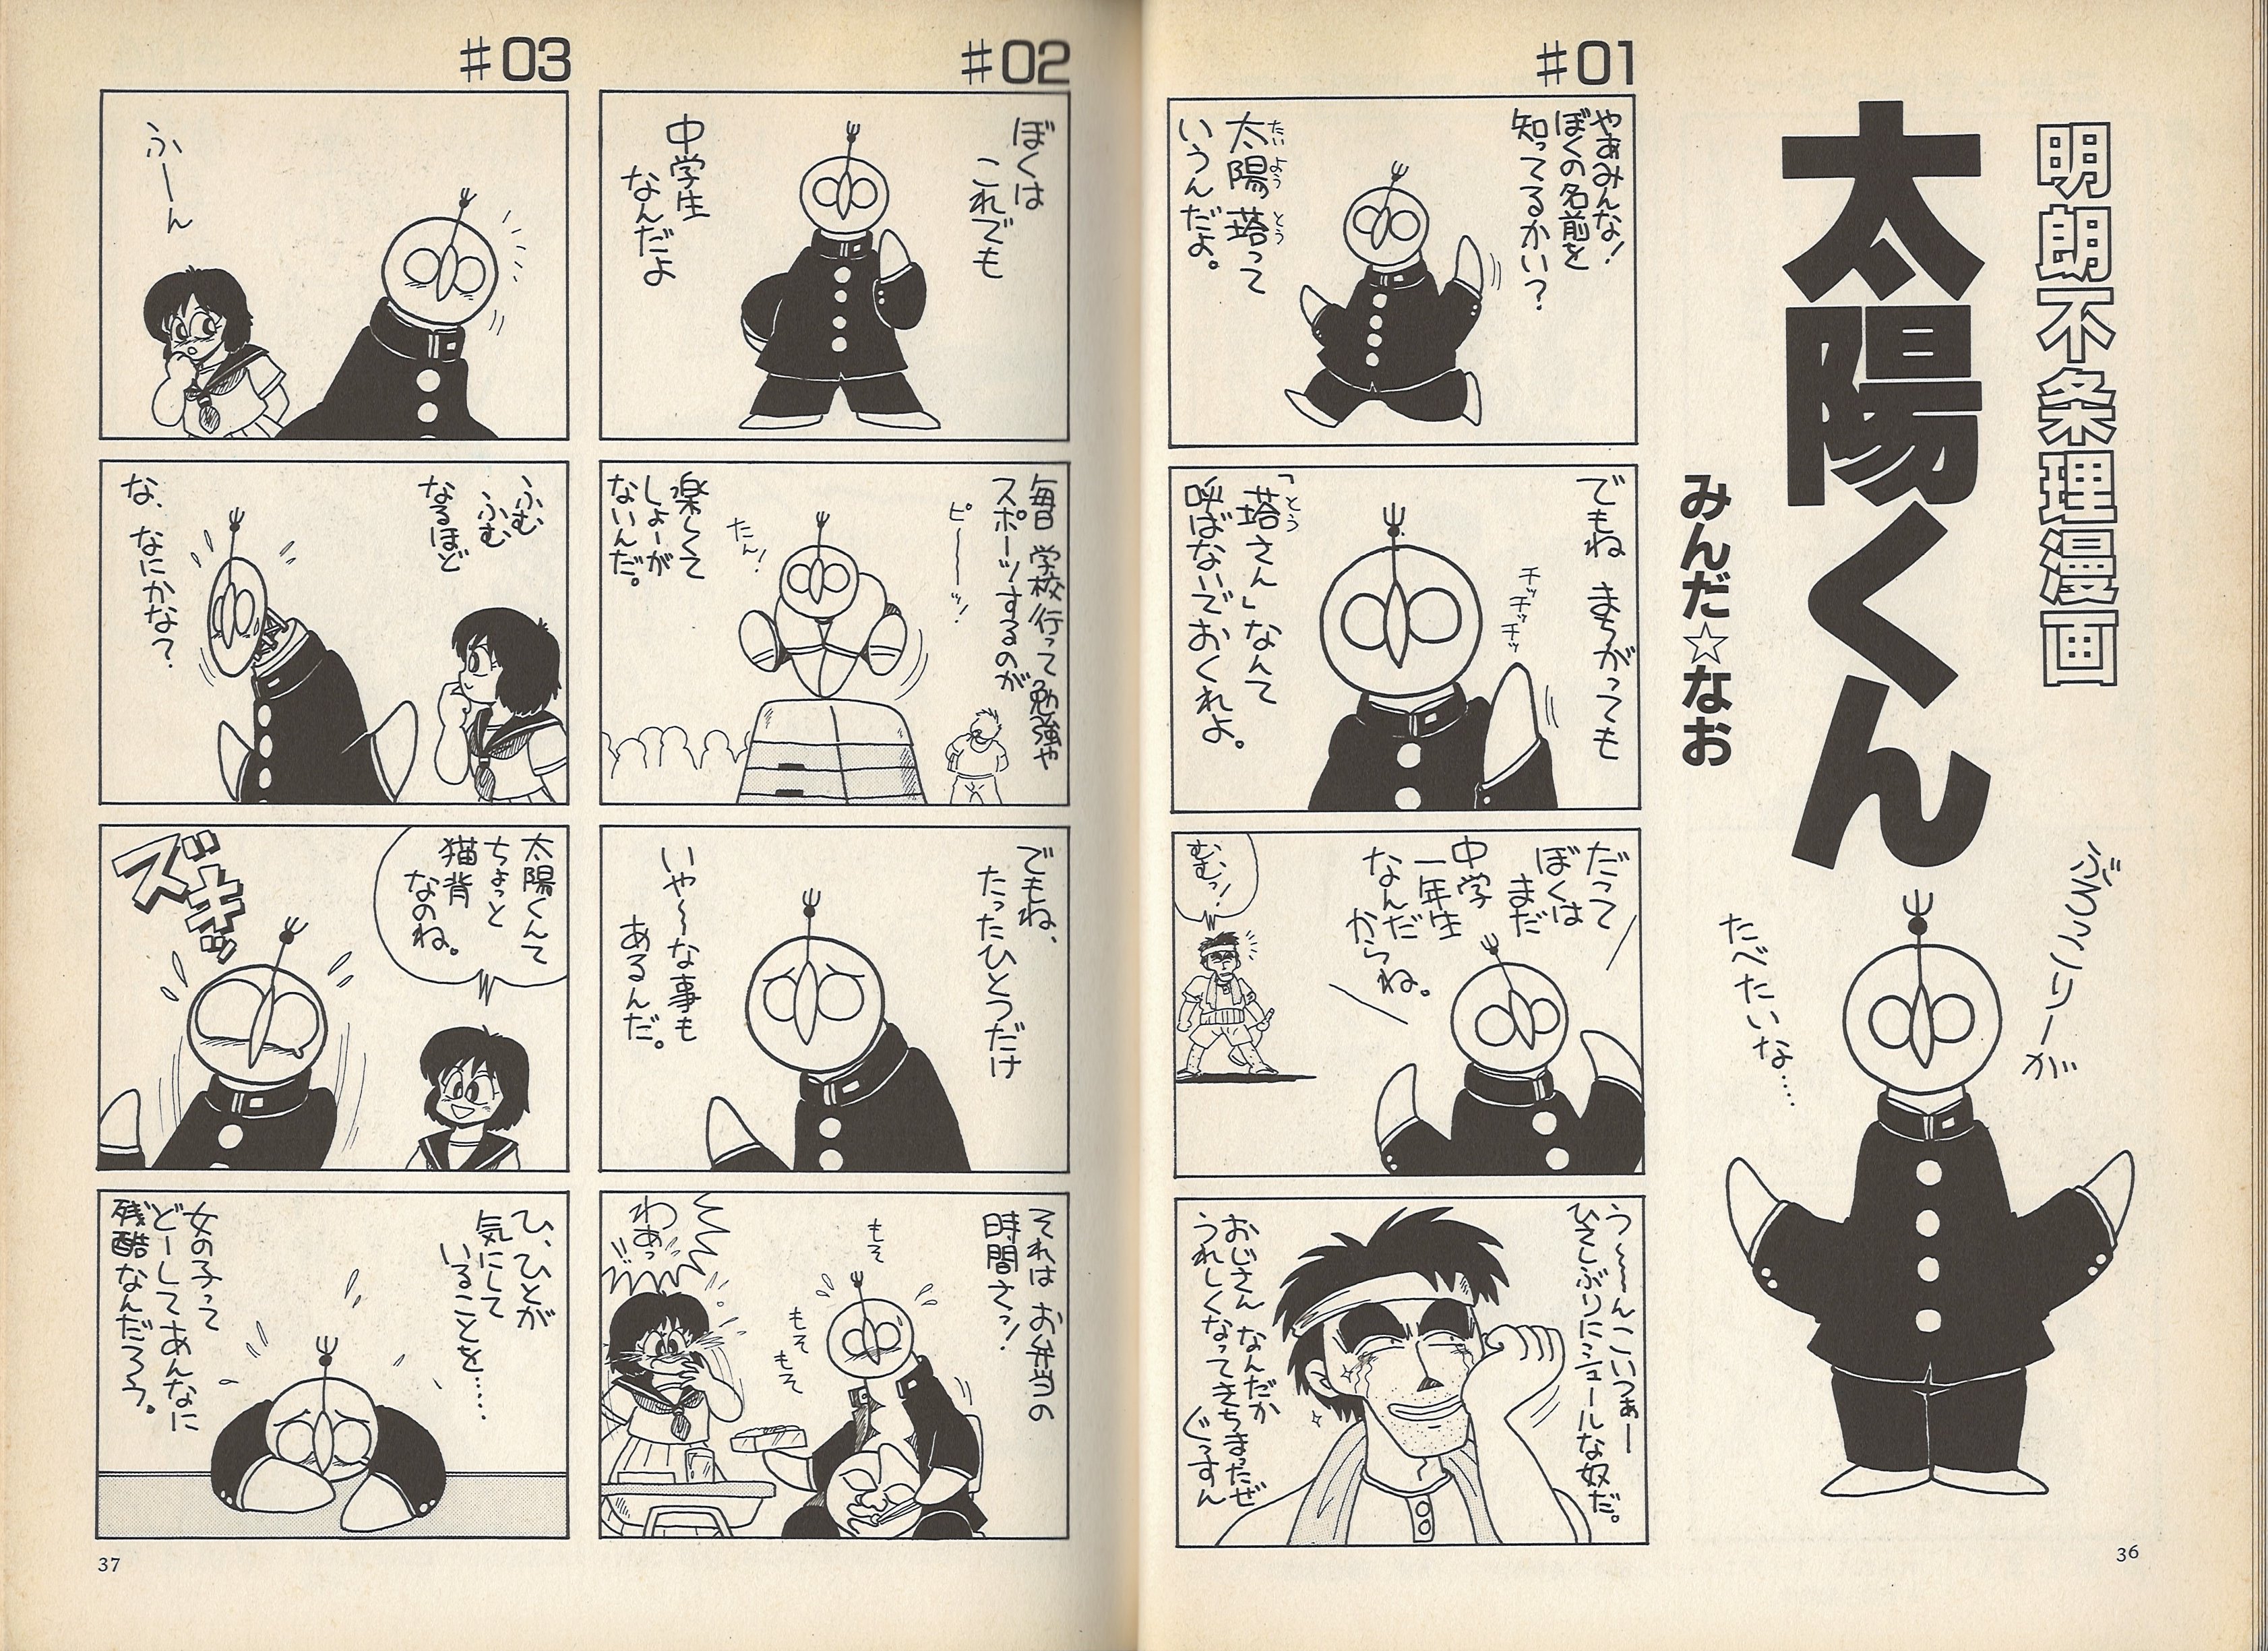 明朗不条理漫画
太陽くん
みんだ☆なお
ぶろっこりーが
たべたいな……
#01
やぁみんな!
ぼくの名前を
知ってるかい?
太陽塔って
たいようとう
いうんだよ。
でもね まちがっても
チッチッチッ
「塔さん」なんて
とう
呼ばないでおくれよ。
だって
ぼくは
まだ
中学
一年生
なんだ
からね。
むむっ!
う〜〜んこいつぁー
ひさしぶりにシュールな奴だ。
おじさん なんだか
うれしくなってきちまったぜ
ぐっすん
36
#02
ぼくは
これでも
中学生
なんだよ
毎日 学校行って勉強や
スポーツするのが
ピ〜〜ッ!
たん!
楽しくて
しょーが
ないんだ。
でもね、
たったひとつだけ
いや〜な事も
あるんだ。
それは お弁当の
時間さっ!
もそ
もそ
もそ
わぁっ!!
#03
ふーん
ふむ
ふむ
なるほど
な、なにかな?
太陽くんて
ちょっと
猫背
なのね。
ズキッ
ひ、ひとが
気にして
いることを……
女の子って
どーしてあんなに
残酷なんだろう。
37